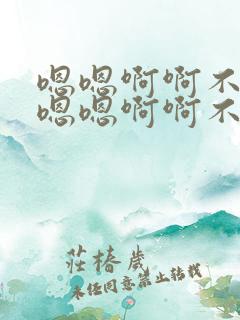 嗯嗯啊啊不
嗯嗯啊啊不
莊椿歲
未经同意禁止转载